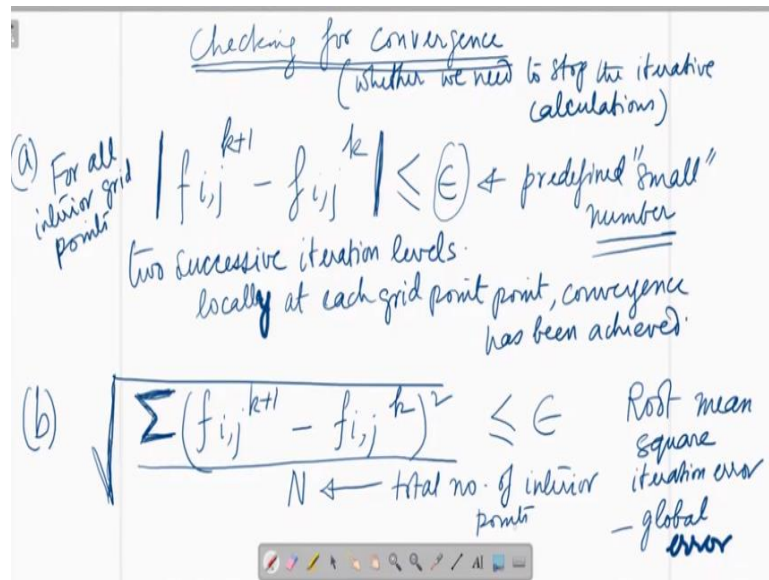 Checking for convergence
(whether we need to stop the iterative
calculations)
(a) For all
interior grid
points
| f i,j ^k+1 - f i,j ^k | ≤ ϵ ← predefined "small"
number
two successive iteration levels.
locally at each grid point point, convergence
has been achieved.
(b) √ Σ(f i,j ^k+1 - f i,j ^k)² ≤ ϵ
N ← total no. of interior
points
Root mean
square
iteration error
- global
error
AI